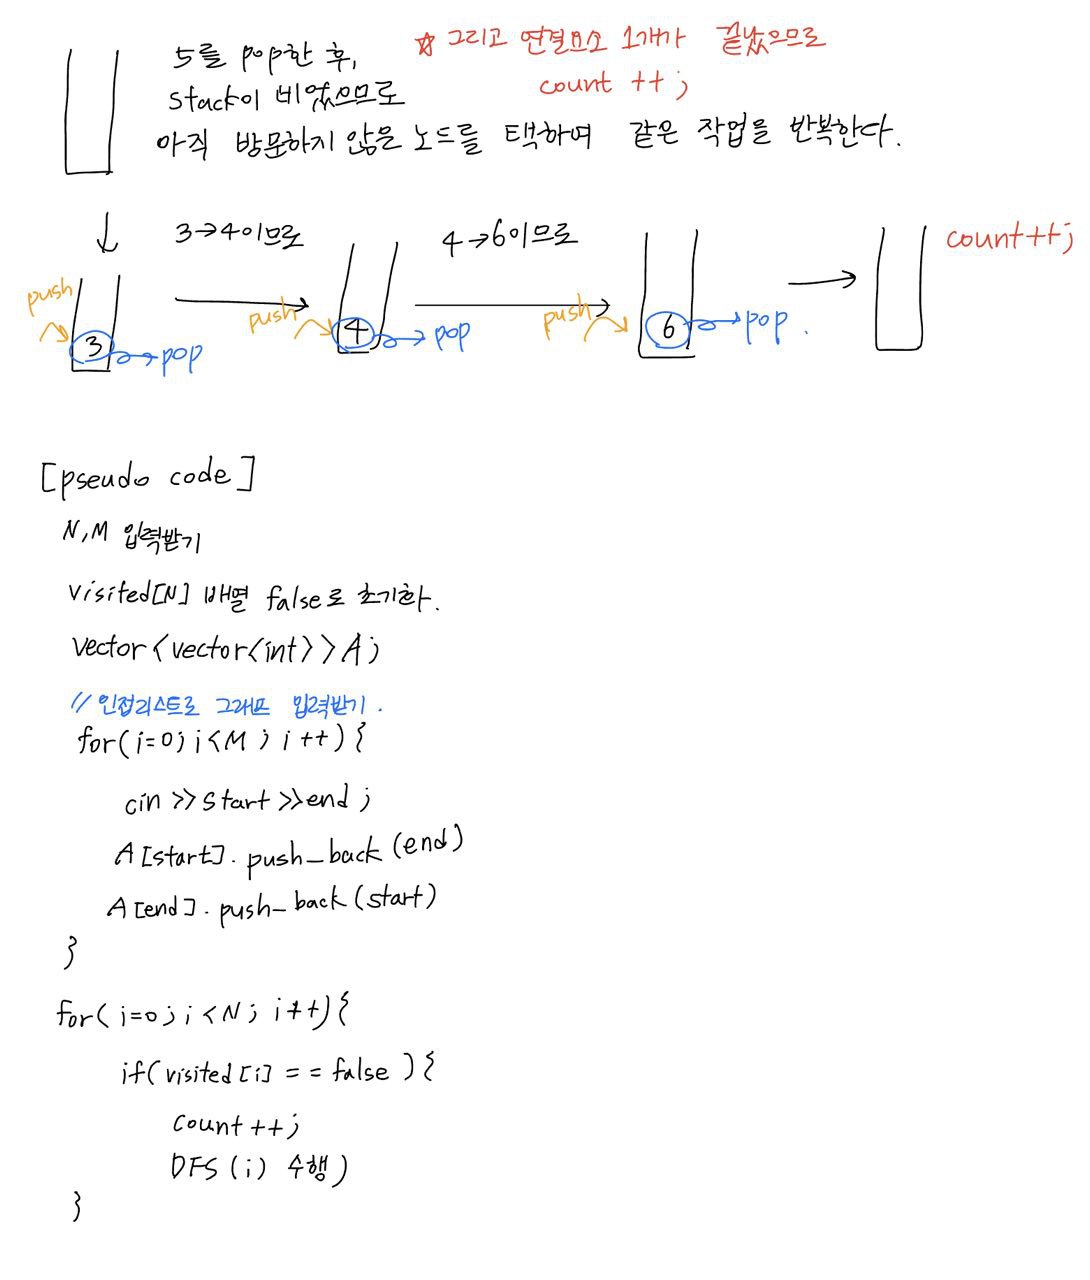 5를 pop한 후,
☆ 그리고 연결요소 1개가 끝났으므로
stack이 비었으므로
count ++ ;
아직 방문하지 않은 노드를 택하여 같은 작업을 반복한다.
3→4이므로
4→6이므로
count++;
push
3
pop
push
4
pop
push
6
pop.
[pseudo code]
N,M 입력받기
visited[N] 배열 false로 초기화.
vector<vector<int>>A;
// 인접리스트로 그래프 입력받기.
for(i=0; i<M; i++){
cin >>start >>end ;
A[start]. push_back (end)
A[end]. push_back (start)
}
for( i=0; i<N; i++){
if( visited[i] == false ){
count ++;
DFS (i) 수행)
}